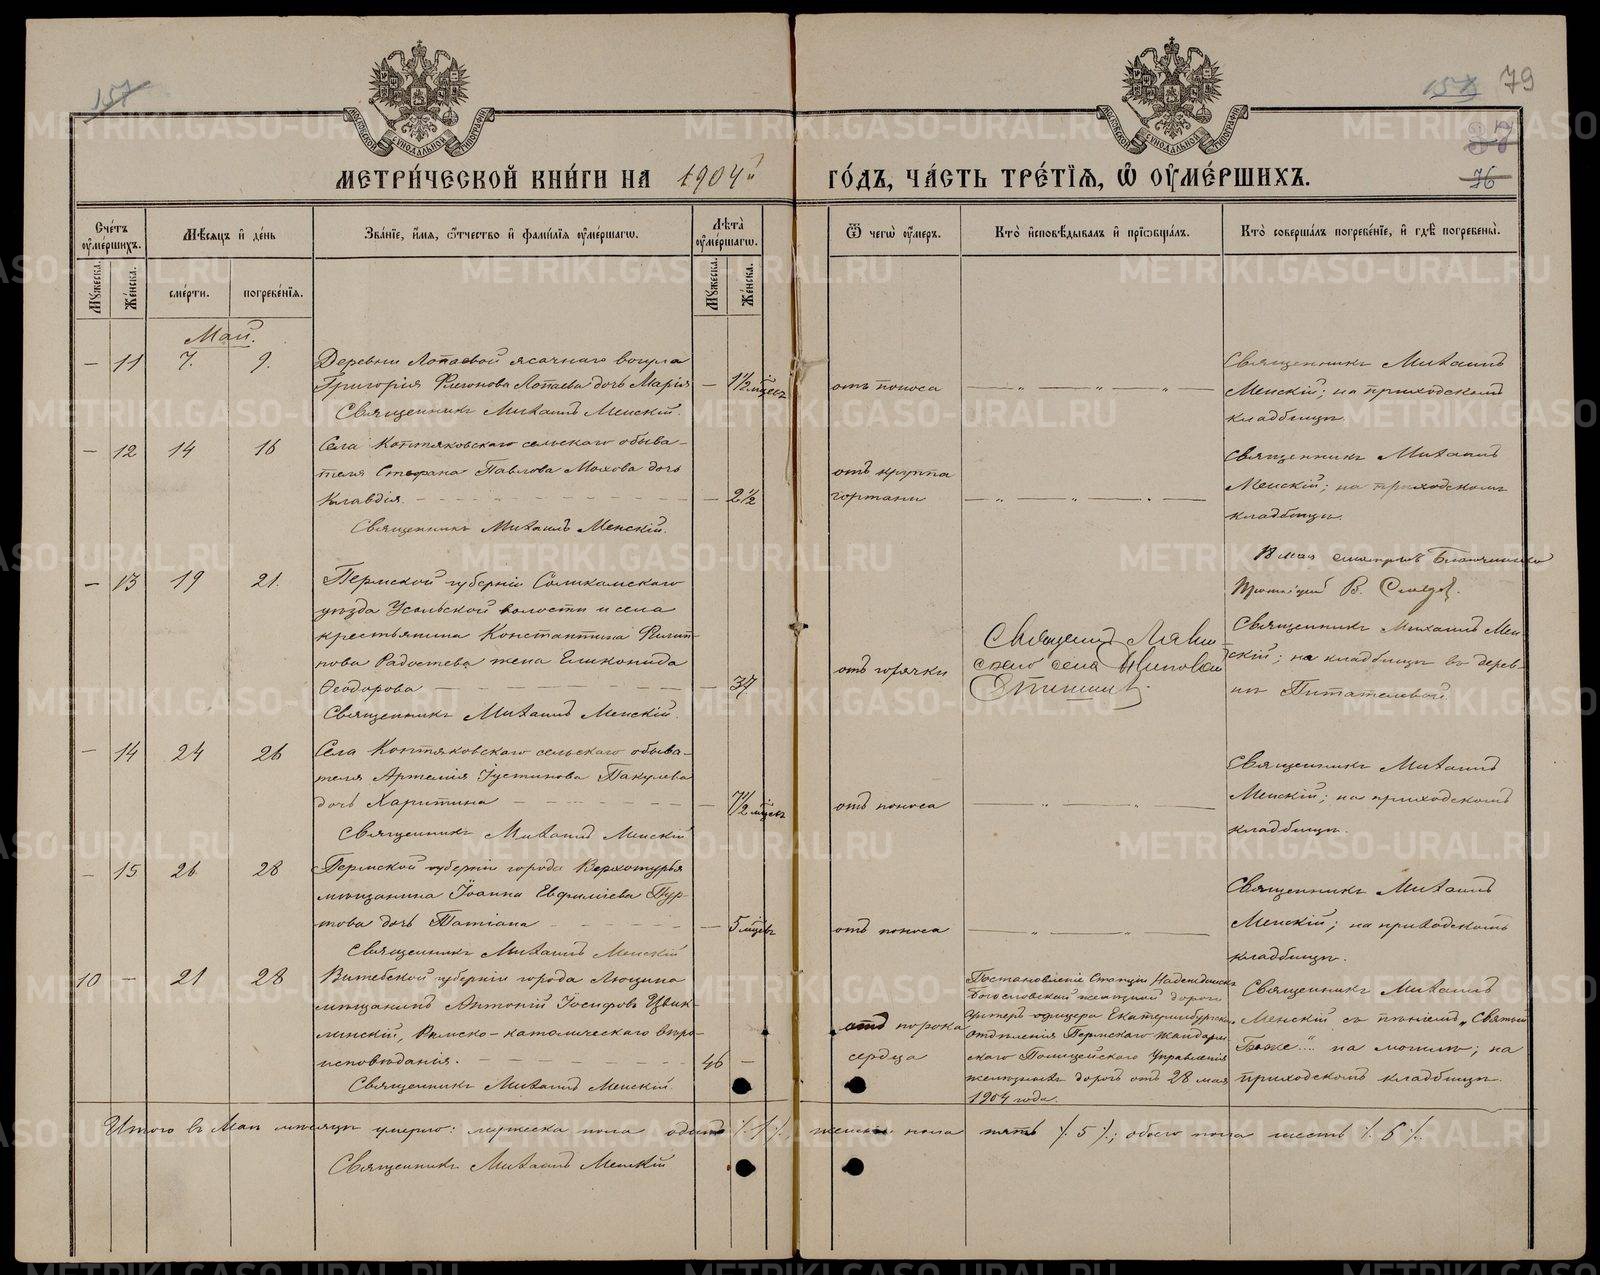 157
157 79
37
76
МЕТРИ́ЧЕСКОЙ КНИ́ГИ НА 1904й ГО́ДЪ, ЧА́СТЬ ТРЕ́ТІЯ, Ѽ ОУМЕ́РШИХЪ.
Сче́тъ оумершихъ.
Мѣсяцъ и де́нь
Зва́ніе, и́мя, о́тчество и фами́лія оумершагѡ.
Лѣта̀ оумершагѡ.
Ѿ чегѡ̀ оу́меръ.
Кто̀ исповѣдывалъ и пріѡбща́лъ.
Кто̀ соверша́лъ погребе́ніе, и гдѣ̀ погребены̀.
Мꙋжеска.
Же́нска.
сме́рти.
погребе́нія.
Мꙋжеска.
Же́нска.
Май.
— 11 7. 9.
Деревни Лопаевой ясачнаго вогула
Григорія Флегонова Лопаева дочь Марія — 1 1/2 мѣсец
Священникъ Михаилъ Менскій.
отъ поноса
Священникъ Михаилъ
Менскій; на приходскомъ
кладбищѣ
— 12 14 16
Села Коптяковскаго сельскаго обыва-
теля Стефана Павлова Мохова дочь
Клавдія. — 2 1/2
Священникъ Михаилъ Менскій.
отъ круппа
гортани
Священникъ Михаилъ
Менскій; на приходскомъ
кладбищѣ.
18 мая смотрѣлъ Благочинный
Протоіерей В. Словцовъ.
— 13 19 21.
Пермской губерніи Соликамскаго
уѣзда Усольской волости и села
крестьянина Константина Филип-
пова Радостева жена Еликонида
Ѳеодорова — 37
Священникъ Михаилъ Менскій.
отъ горячки
Священникъ
села
Священникъ Михаилъ Мен-
скій; на кладбищѣ въ дерев-
нѣ Питателевой
— 14 24 26
Села Коптяковскаго сельскаго обыва-
теля Артемія Іустинова Пакулева
дочь Харитина — 7 1/2 мѣсец
Священникъ Михаилъ Менскій
отъ поноса
Священникъ Михаилъ
Менскій; на приходскомъ
кладбищѣ.
— 15 26 28
Пермской губерніи города Верхотурья
мѣщанина Іоанна Евфиміева Пур-
това дочь Татіана — 5 мѣсец
Священникъ Михаилъ Менскій
отъ поноса
Священникъ Михаилъ
Менскій; на приходскомъ
кладбищѣ.
10 — 21 28
Витебской губерніи города Люцина
мѣщанинъ Антоній Іосифовъ Цвик-
линскій, Римско-католическаго вѣро-
исповѣданія. 46 —
Священникъ Михаилъ Менскій.
отъ порока
сердца
Постановленіе Станціи Надеждинскъ
Богословской желѣзной дороги
Унтеръ-офицера Екатеринбургскаго
отдѣленія Пермскаго жандарм-
скаго Полицейскаго Управленія
желѣзныхъ дорогъ отъ 28 мая
1904 года.
Священникъ Михаилъ
Менскій съ пѣніемъ „Святый
Боже...“ на могилѣ; на
приходскомъ кладбищѣ.
Итого въ Маѣ мѣсяцѣ умерло: мужеска пола одинъ /. 1 /. женска пола пять /. 5 /.; обоего пола шесть /. 6 /.
Священникъ Михаилъ Менскій